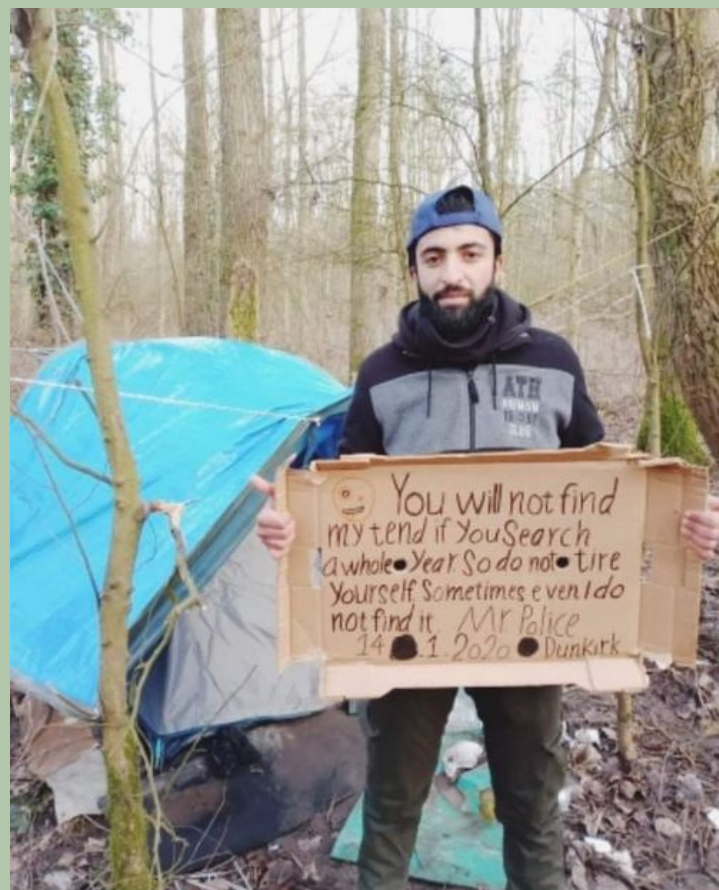 ATH
You will not find
my tend if You Search
a whole Year. So do not tire
Yourself. Sometimes even I do
not find it. Mr Police
14 . 1 . 2020 Dunkirk